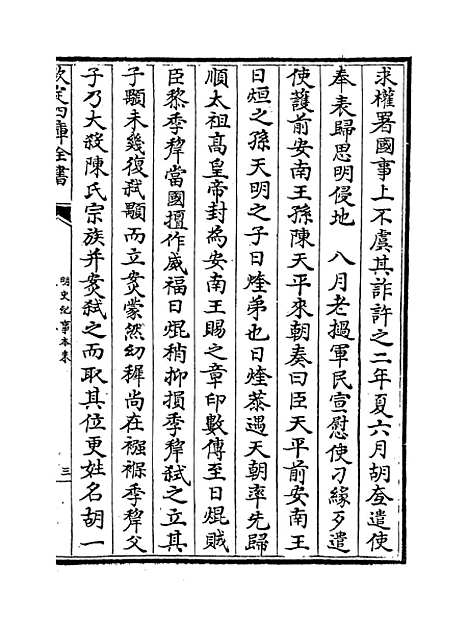 求權署國事上不虞其詐許之二年夏六月胡𡗨遣使
奉表歸思明侵地　八月老撾軍民宣慰使刁線歹遣
使護前安南王孫陳天平來朝奏曰臣天平前安南王
日烜之孫天明之子日煃弟也日煃恭遇天朝率先歸
順太祖高皇帝封為安南王賜之章印數傳至日焜賊
臣黎季犛當國擅作威福日焜稍抑損季犛弑之立其
子顒未幾復弑顒而立𡘤蒙然幼穉尚在襁褓季犛父
子乃大殺陳氏宗族并𡘤弑之而取其位更姓名胡一
欽定四庫全書
明史紀事本末
三